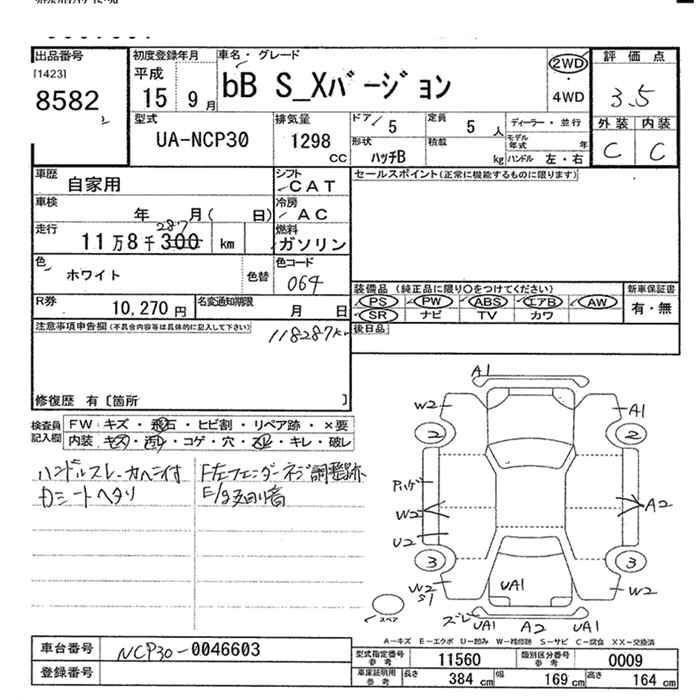 出品番号
[1423]
8582
初度登録年月
平成
15 9月
車名・グレード
bB S_Xバージョン
2WD
・
4WD
評価点
3.5
外装 内装
C C
型式
UA-NCP30
排気量
1298
CC
ドア 5
定員 5 人
形状
ハッチB
積載 kg
ディーラー・並行
モデル年式 年
ハンドル 左・右
車歴
自家用
シフト
CAT
車検
年 月( 日)
冷房
AC
走行
287
11万8千300 km
燃料
ガソリン
色
ホワイト
色替
色コード
064
R券
10,270円
名変通知期限
月 日
セールスポイント(正常に機能するものに限ります)
装備品(純正品に限り○をつけてください)
PS PW ABS エアB AW
SR ナビ TV カワ
新車保証書
有・無
後日品
注意事項申告欄(不具合内容等は具体的に記入して下さい)
118287km
修復歴 有[箇所 ]
検査員記入欄
FW キズ・飛石・ヒビ割・リペア跡・×要
内装 キズ・汚れ・コゲ・穴・スレ・キレ・破レ
ハンドルスレ
Dシートヘタリ
F左フェンダーネジ調整跡
A1
W2 A1
2 2
W2 A2
U2
3 3
W2 S1 W2
UA1
ズレ UA1 A2 UA1
スペア
A−キズ E−エクボ U−凹み W−補修跡 S−サビ C−腐食 XX−交換済
車台番号
NCP30-0046603
登録番号
型式指定番号
参考
11560
類別区分番号
参考
0009
車庫証明用
参考
長さ 384 cm 幅 169 cm 高さ 164 cm